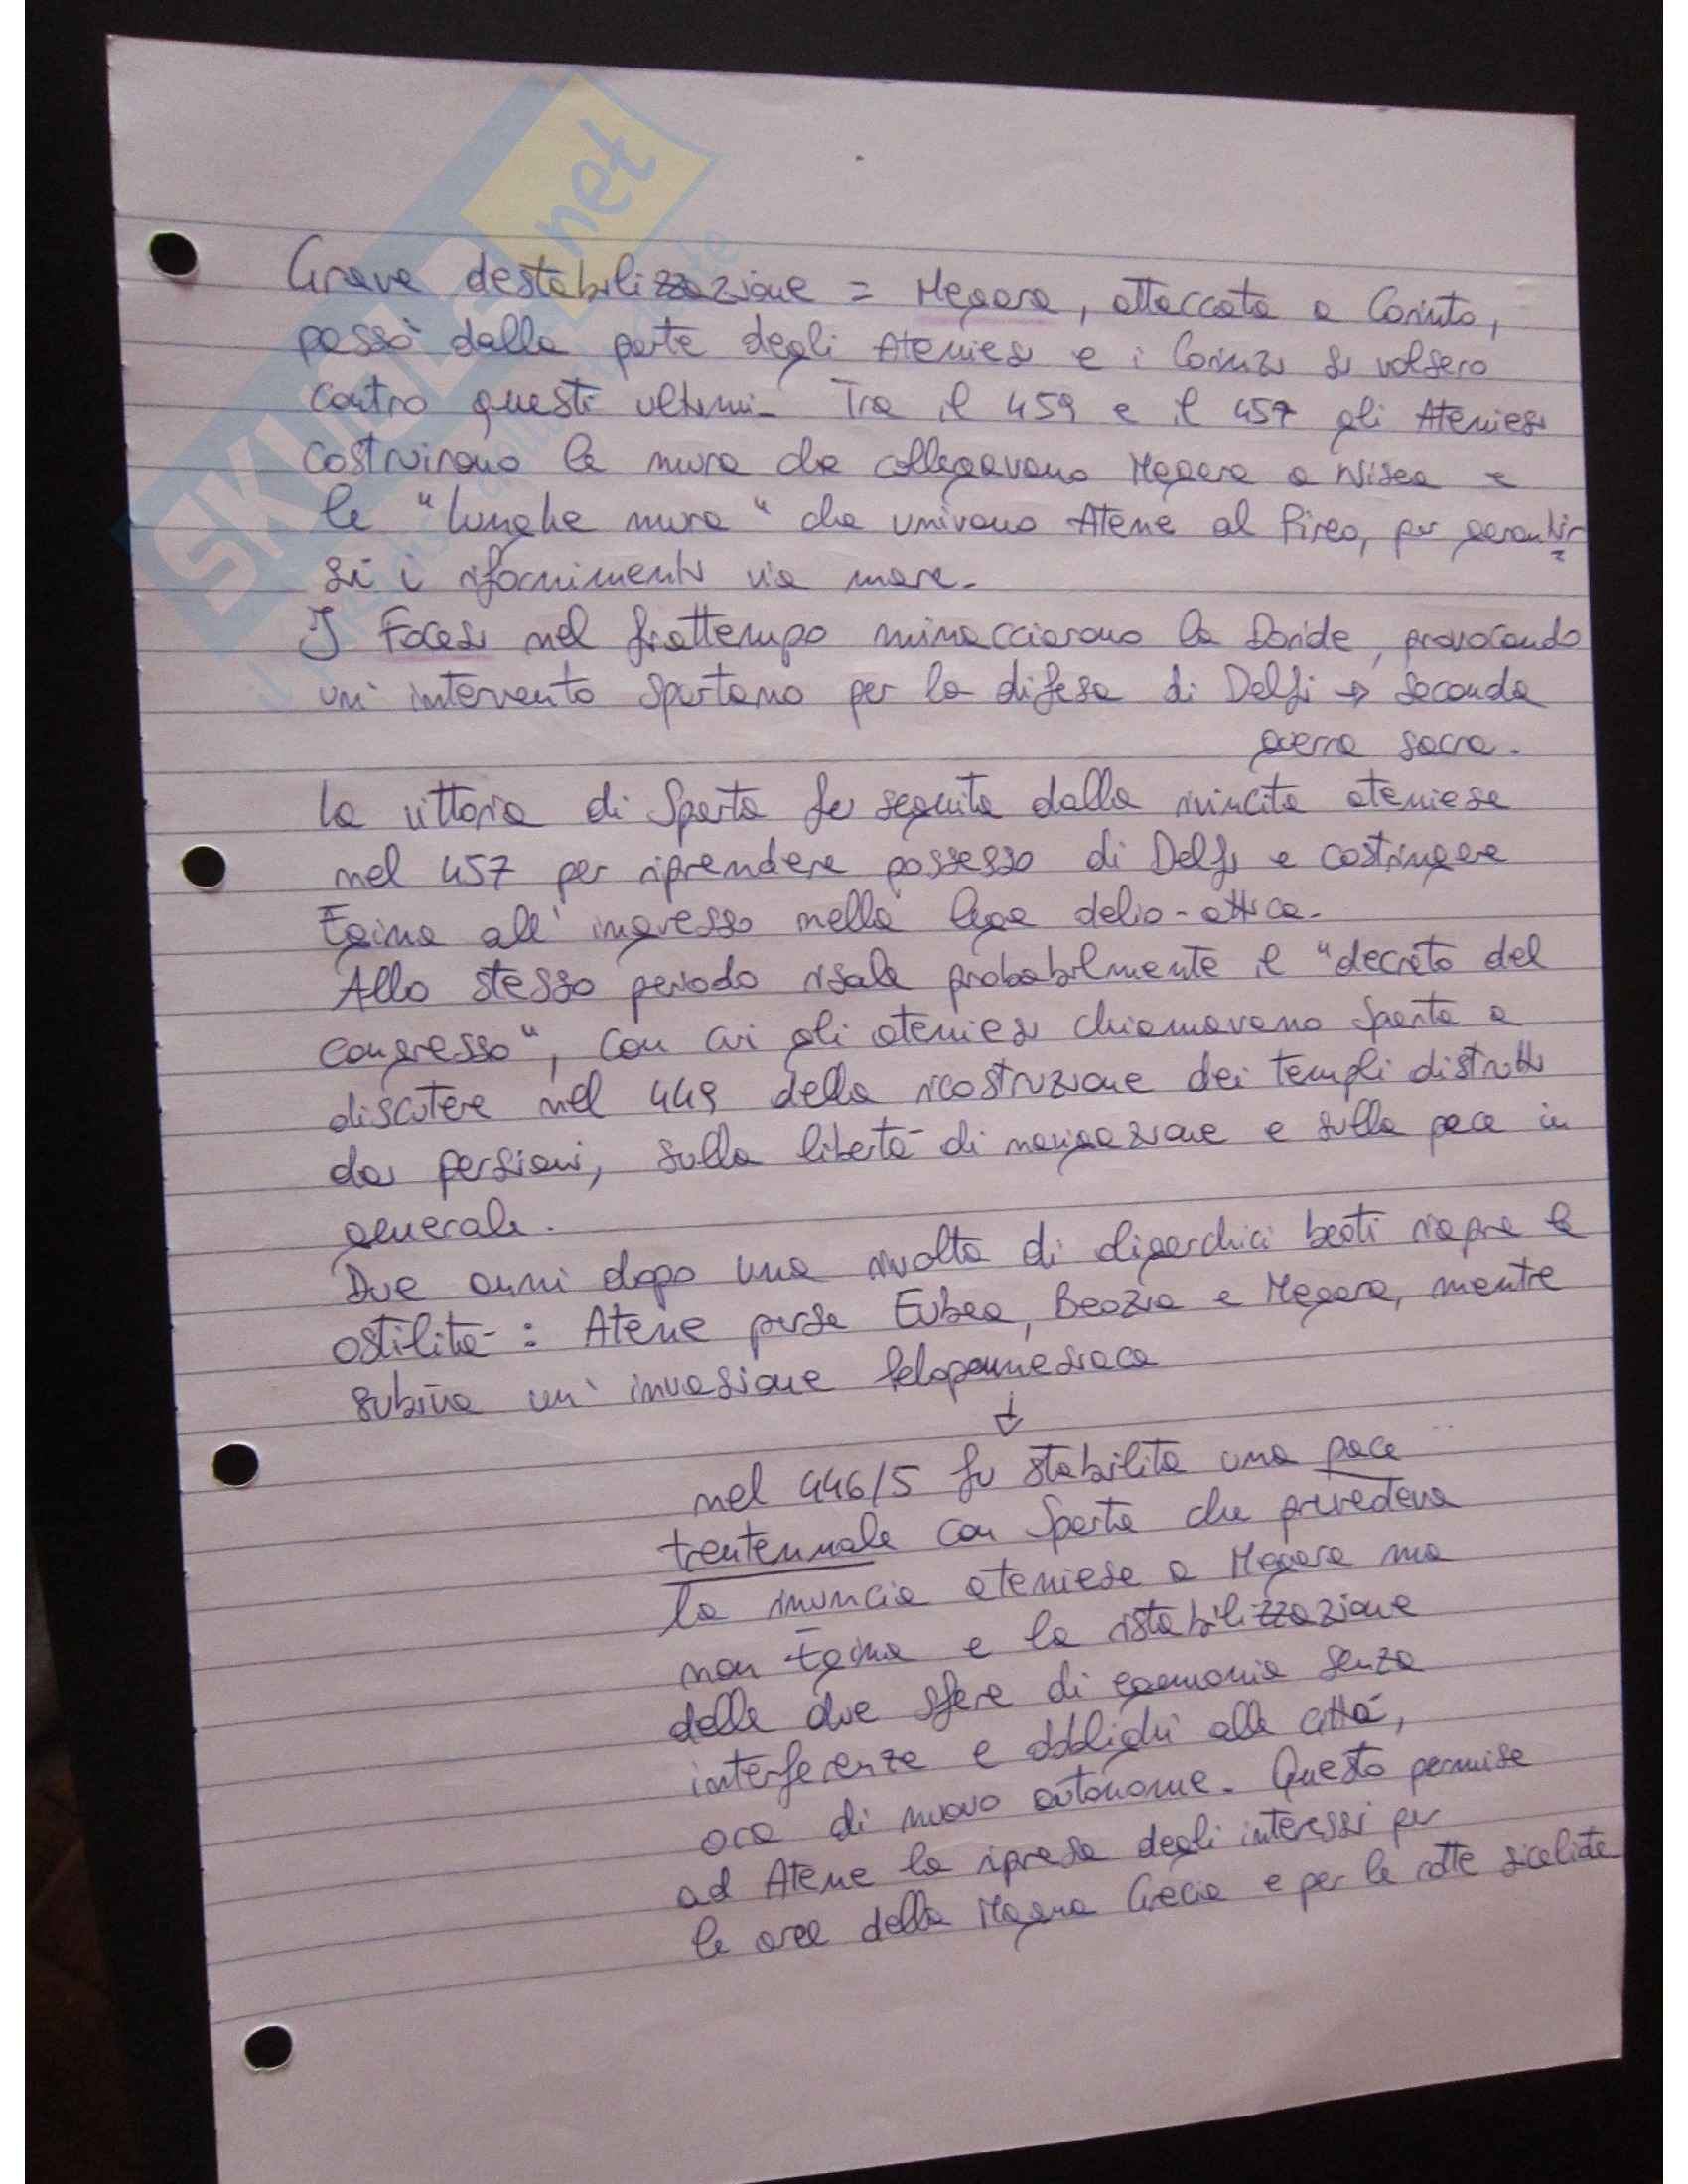 SKUOLA.net
Grave destabilizzazione = Megara, attaccata a Corinto,
passò dalla parte degli Ateniesi e i Corinzi si volsero
contro questi ultimi. Tra il 459 e il 457 gli Ateniesi
costruirono le mura che collegavano Megara a Nisea e
le "lunghe mura" che univano Atene al Pireo, per garantir
si i rifornimenti via mare.
I Focesi nel frattempo minacciarono la Doride, provocando
un' intervento spartano per la difesa di Delfi → seconda
guerra sacra.
La vittoria di Sparta fu seguita dalla rivincita ateniese
nel 457 per riprendere possesso di Delfi e costringere
Egina all' ingresso nella lega delio-attica.
Allo stesso periodo risale probabilmente il "decreto del
congresso", con cui gli ateniesi chiamavano Sparta a
discutere nel 449 della ricostruzione dei templi distrutti
dai persiani, sulla libertà di navigazione e sulla pace in
generale.
Due anni dopo una rivolta di oligarchici beoti riapre le
ostilità: Atene perse Eubea, Beozia e Megara, mentre
subiva un' invasione peloponnesiaca
↓
nel 446/5 fu stabilita una pace
trentennale con Sparta che prevedeva
la rinuncia ateniese a Megara ma
non Egina e la ristabilizzazione
delle due sfere di egemonia senza
interferenze e obblighi alle città,
ora di nuovo autonome. Questo permise
ad Atene la ripresa degli interessi per
le aree della Magna Grecia e per le rotte siceliote